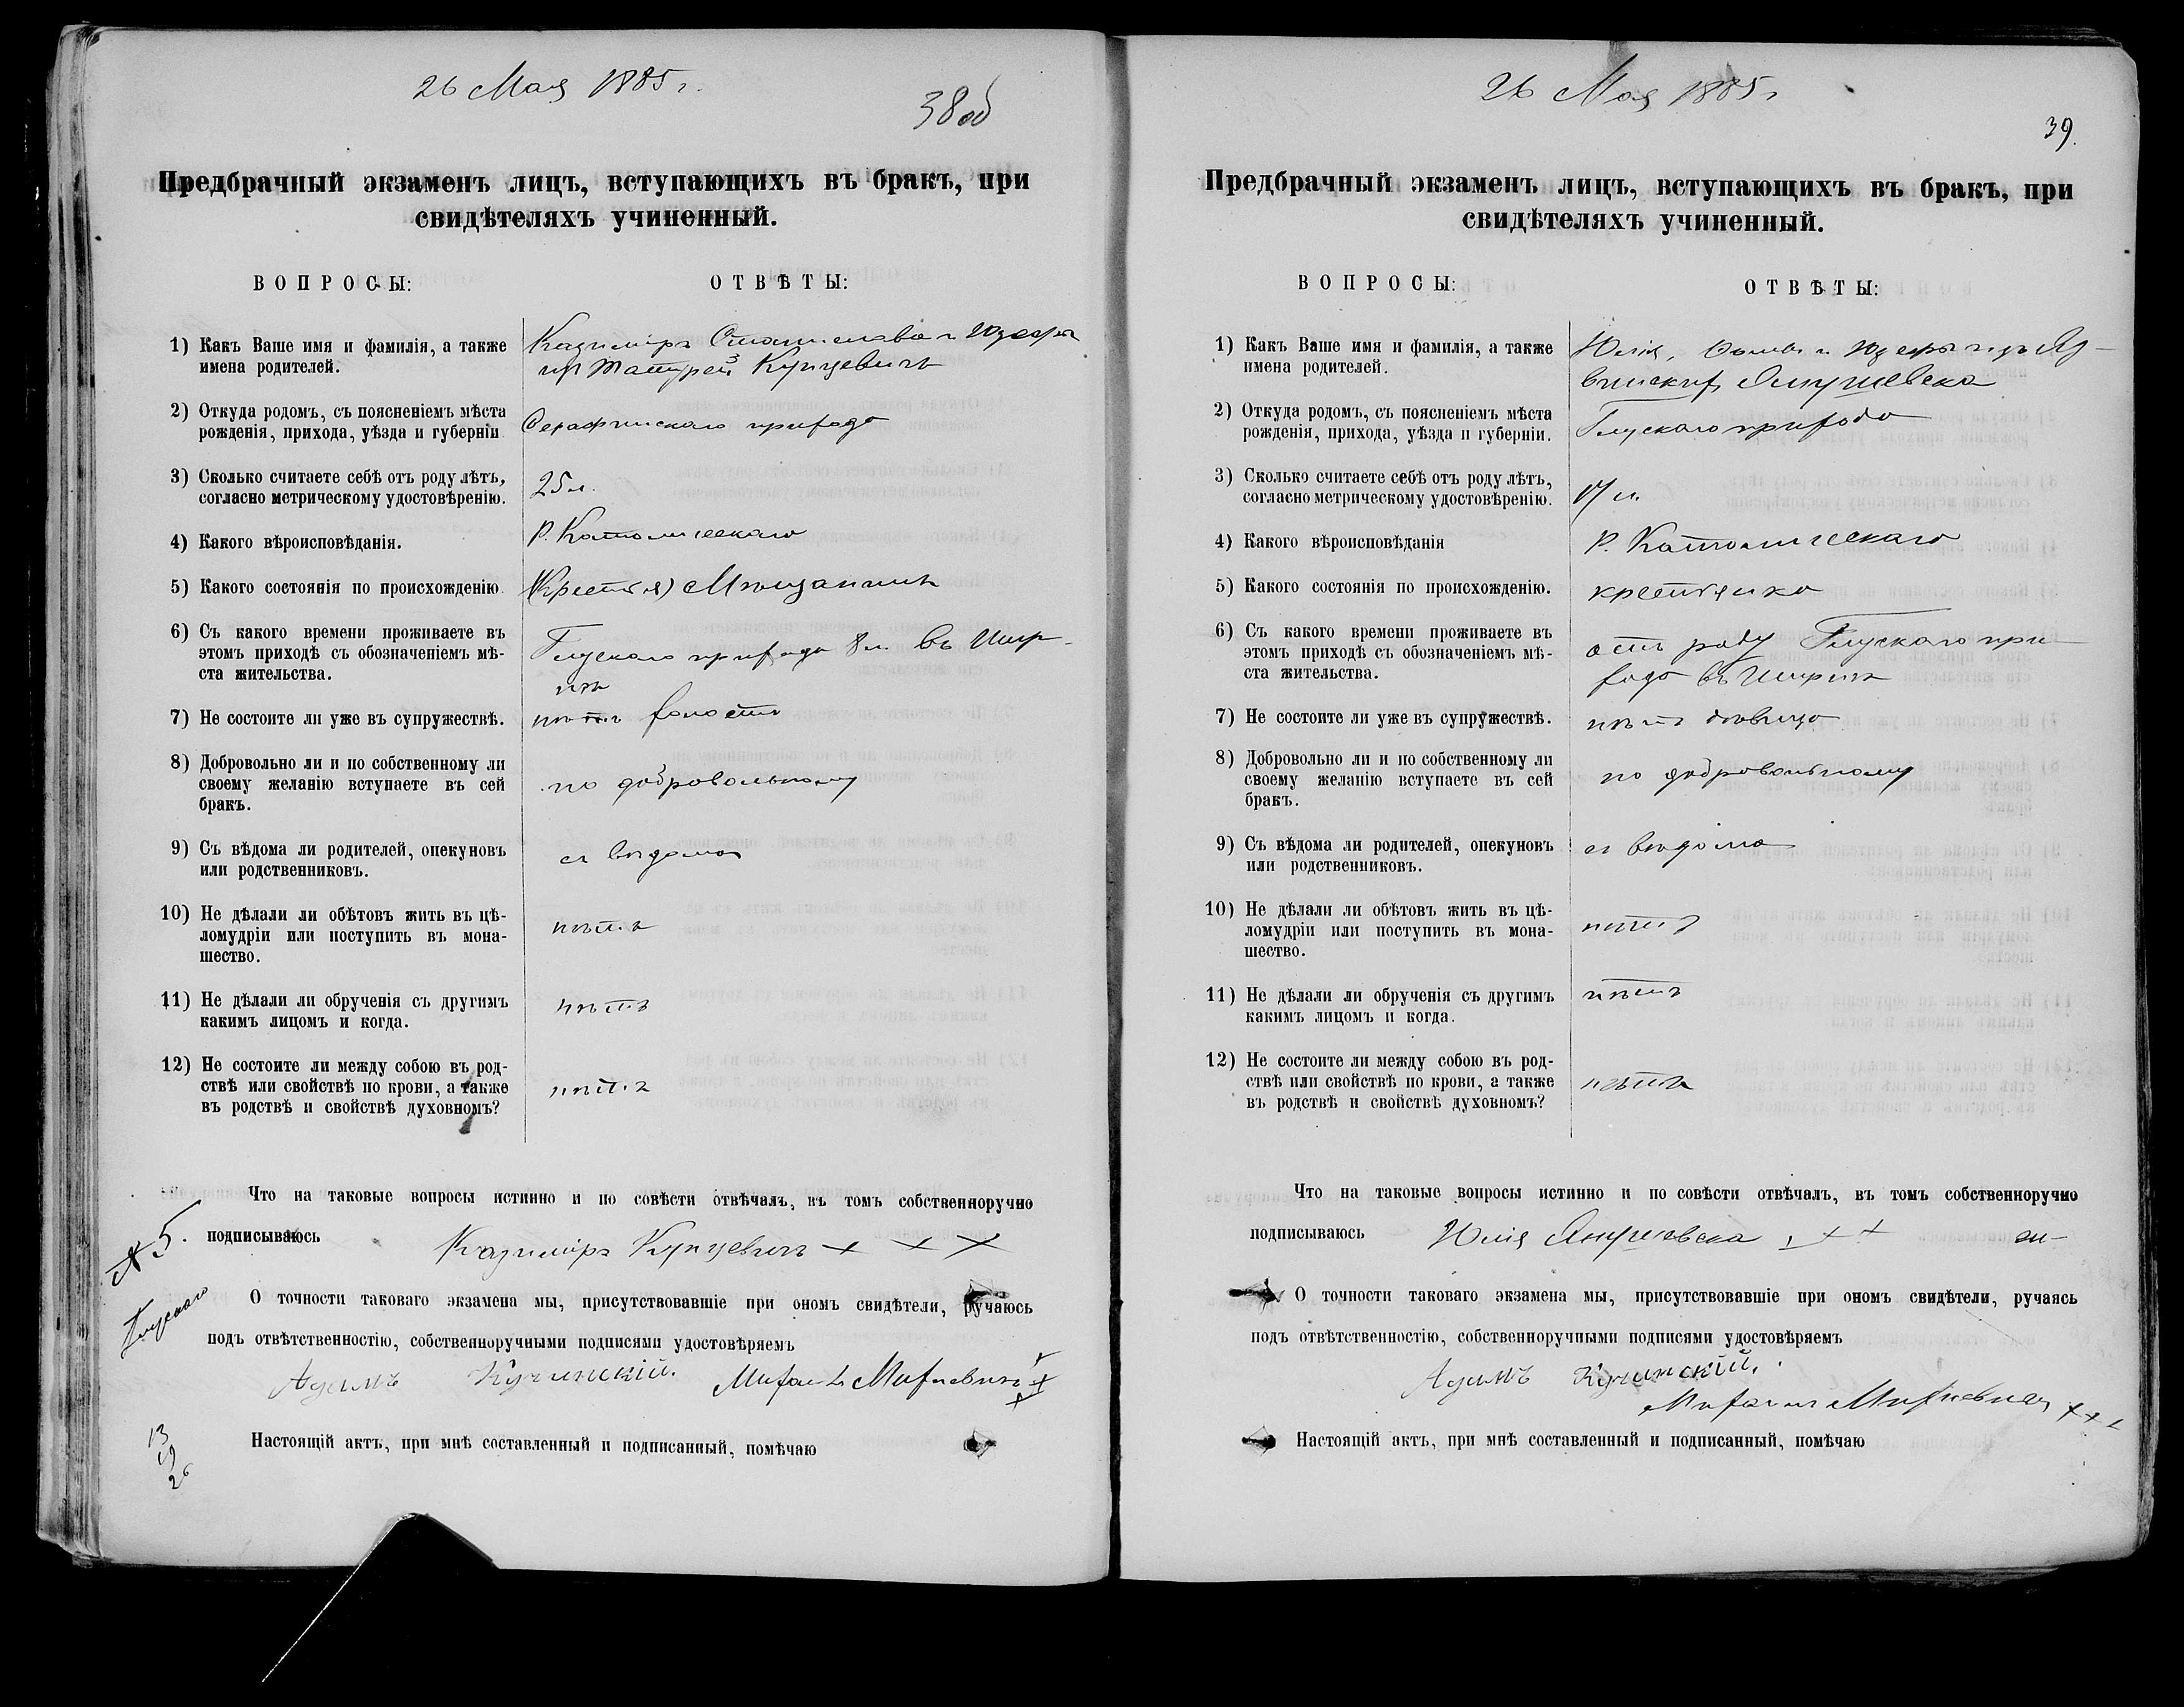 26 Мая 1885 г.
38 об
Предбрачный экзаменъ лицъ, вступающихъ въ бракъ, при
свидѣтеляхъ учиненный.
ВОПРОСЫ:
ОТВѢТЫ:
1) Какъ Ваше имя и фамилія, а также
имена родителей.
Казиміръ Станислава и Юзефы
изъ Купцевичъ
2) Откуда родомъ, съ поясненіемъ мѣста
рожденія, прихода, уѣзда и губерніи
прихода
3) Сколько считаете себѣ отъ роду лѣтъ,
согласно метрическому удостовѣренію.
25 л.
4) Какого вѣроисповѣданія.
Р. Католическаго
5) Какого состоянія по происхожденію
Мѣщанинъ
6) Съ какого времени проживаете въ
этомъ приходѣ съ обозначеніемъ мѣ-
ста жительства.
Глускаго прихода 8 л. въ
7) Не состоите ли уже въ супружествѣ.
нѣтъ холостъ
8) Добровольно ли и по собственному ли
своему желанію вступаете въ сей
бракъ.
по добровольному
9) Съ вѣдома ли родителей, опекуновъ
или родственниковъ.
съ вѣдома
10) Не дѣлали ли обѣтовъ жить въ цѣ-
ломудріи или поступить въ мона-
шество.
нѣтъ
11) Не дѣлали ли обрученія съ другимъ
какимъ лицомъ и когда.
нѣтъ
12) Не состоите ли между собою въ род-
ствѣ или свойствѣ по крови, а также
въ родствѣ и свойствѣ духовномъ?
нѣтъ
Что на таковые вопросы истинно и по совѣсти отвѣчалъ, въ томъ собственноручно
подписываюсь Казиміръ Купцевичъ + + +
№ 5.
Глускаго
О точности таковаго экзамена мы, присутствовавшіе при ономъ свидѣтели, ручаюсь
подъ отвѣтственностію, собственноручными подписями удостовѣряемъ
Адамъ Кучинскій. Михаилъ Михневичъ + + +
13
19
26
Настоящій актъ, при мнѣ составленный и подписанный, помѣчаю
26 Мая 1885 г
39.
Предбрачный экзаменъ лицъ, вступающихъ въ бракъ, при
свидѣтеляхъ учиненный.
ВОПРОСЫ:
ОТВѢТЫ:
1) Какъ Ваше имя и фамилія, а также
имена родителей.
Юлія, и Юзефы изъ
Янушевска
2) Откуда родомъ, съ поясненіемъ мѣста
рожденія, прихода, уѣзда и губерніи.
Глускаго прихода
3) Сколько считаете себѣ отъ роду лѣтъ,
согласно метрическому удостовѣренію.
17 л.
4) Какого вѣроисповѣданія
Р. Католическаго
5) Какого состоянія по происхожденію.
крестьянка
6) Съ какого времени проживаете въ
этомъ приходѣ съ обозначеніемъ мѣ-
ста жительства.
отъ роду Глускаго при-
хода въ
7) Не состоите ли уже въ супружествѣ.
нѣтъ дѣвица
8) Добровольно ли и по собственному ли
своему желанію вступаете въ сей
бракъ.
по добровольному
9) Съ вѣдома ли родителей, опекуновъ
или родственниковъ.
съ вѣдома
10) Не дѣлали ли обѣтовъ жить въ цѣ-
ломудріи или поступить въ мона-
шество.
нѣтъ
11) Не дѣлали ли обрученія съ другимъ
какимъ лицомъ и когда.
нѣтъ
12) Не состоите ли между собою въ род-
ствѣ или свойствѣ по крови, а также
въ родствѣ и свойствѣ духовномъ?
нѣтъ
Что на таковые вопросы истинно и по совѣсти отвѣчалъ, въ томъ собственноручно
подписываюсь Юлія Янушевска + + +
О точности таковаго экзамена мы, присутствовавшіе при ономъ свидѣтели, ручаясь
подъ отвѣтственностію, собственноручными подписями удостовѣряемъ
Адамъ Кучинскій.
Михаилъ Михневичъ + + +
Настоящій актъ, при мнѣ составленный и подписанный, помѣчаю